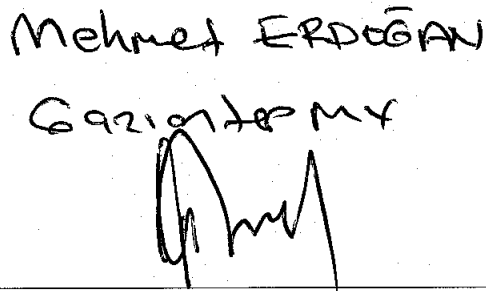 Mehmet ERDOĞAN
Gaziantep MV